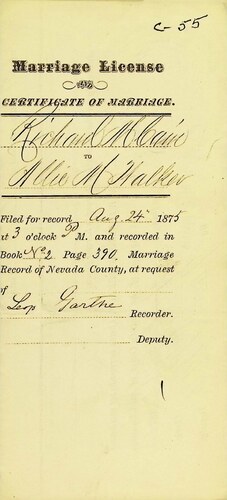 C-55
Marriage License
AND
CERTIFICATE OF MARRIAGE.
Richard McCain
TO
Allie M Walker
Filed for record Aug. 24" 1875
at 3 o'clock P M. and recorded in
Book No 2 Page 390, Marriage
Record of Nevada County, at request
of
Leop Garthe
Recorder.
Deputy.